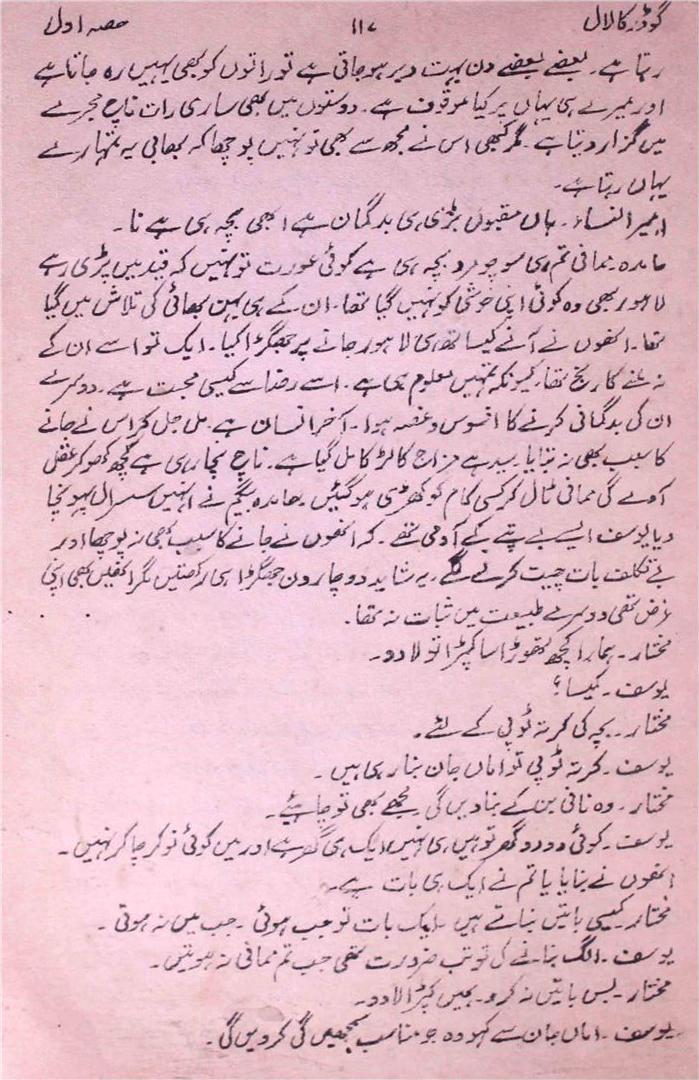 گوڈر کا لال ۱۱۷ حصہ اول
رہتا ہے۔ بعضے بعضے دن بہت دیر ہو جاتی ہے تو راتوں کو بھی یہیں رہ جاتا ہے
اور میرے ہی یہاں پر کیا موقوف ہے۔ دوستوں میں بھی ساری رات ناچ مجرے
میں گزار دیتا ہے۔ مگر کبھی اس نے مجھ سے بھی تو نہیں پوچھا کہ بھابی یہ تمہارے
یہاں رہتا ہے۔
امیر النساء۔ ہاں مقبول بڑی ہی بدگمان ہے ابھی بچہ ہی ہے نا۔
حامدہ۔ ممانی تم ہی سوچو مرد بچہ ہی ہے کوئی عورت تو نہیں کہ قید میں پڑی رہے
لاہور بھی وہ کوئی اپنی خوشی کو نہیں گیا تھا۔ ان کے ہی بہن بھائی کی تلاش میں گیا
تھا۔ انھوں نے آنے کیساتھ ہی لاہور جانے پر جھگڑا کیا۔ ایک تو اسے ان کے
نہ ملنے کا رنج تھا، کیونکہ تمہیں معلوم ہی ہے۔ اسے رضا سے کیسی محبت ہے۔ دوسرے
ان کی بدگمانی کرنے کا افسوس و غصہ ہوا۔ آخر انسان ہے۔ مل جل کر اس نے جانے
کا سبب بھی نہ بتایا۔ سیدھے مزاج کا لڑکا مل گیا ہے۔ ناچ نچا رہی ہے کچھ کھو کر عقل
آوے گی ممانی ٹال کر کسی کام کو کھڑی ہو گئیں۔ حامدہ بیگم نے انہیں سسرال پہونچا
دیا یوسف ایسے بے پتے کے آدمی تھے۔ کہ انھوں نے جانے کا سبب بھی نہ پوچھا اور
بے تکلف بات چیت کرنے لگے۔ یہ شاید دو چار دن جھگڑا ہی رکھتیں مگر انھیں بھی اپنی
غرض تھی دوسرے طبیعت میں ثبات نہ تھا۔
مختار۔ ہمارا کچھ تھوڑا سا کپڑا تو لا دو۔
یوسف۔ کیسا؟
مختار۔ بچہ کی کرتہ ٹوپی کے لئے۔
یوسف۔ کرتہ ٹوپی تو اماں جان بنا رہی ہیں۔
مختار۔ وہ نانی بن کے بنا دیں گی مجھے بھی تو چاہئے۔
یوسف۔ کوئی دو دو گھر تو ہیں ہی نہیں ایک ہی گھر ہے اور میں کوئی نوکر چاکر نہیں۔
انھوں نے بنایا یا تم نے ایک ہی بات ہے۔
مختار۔ کیسی باتیں بناتے ہیں۔ ایک بات تو جب ہوتی۔ جب میں نہ ہوتی۔
یوسف۔ الگ بنانے کی تو تب ضرورت تھی جب تم ممانی نہ ہوتیں۔
مختار۔ بس باتیں نہ کرو۔ ہمیں کپڑا لا دو۔
یوسف۔ اماں جان سے کہو وہ جو مناسب سمجھیں گی کر دیں گی۔